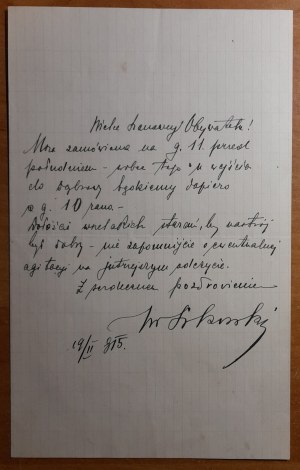 Wielce Szanowny Obywatelu!
Msza zamówiona na g. 11. przed
południem – wobec tego w wejściu
do dąbrowy będziemy dopiero
o g. 10 rano. –
Dołóżcie wszelakich starań, by nastrój
był dobry – nie zapomnijcie o ewentualnej
agitacji na jutrzejszym odczycie.
Z serdecznem pozdrowieniem
Sikorski
19/II 915.